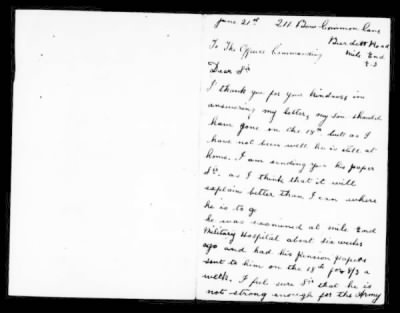 June 21st 211 Bow Common Lane
Burdett Road
Mile End
E.3
To The Officer Commanding
Dear Sr
I thank you for your kindness in
answering my letter, my son should
have gone on the 18th but as I
have not been well he is still at
home. I am sending you his paper
Sr. as I think that it will
explain better than I can where
he is to go
he was examined at mile End
Military Hospital about six weeks
ago and had his pension papers
sent to him on the 18th for 8/3 a
week. I feel sure Sr that he is
not strong enough for the Army